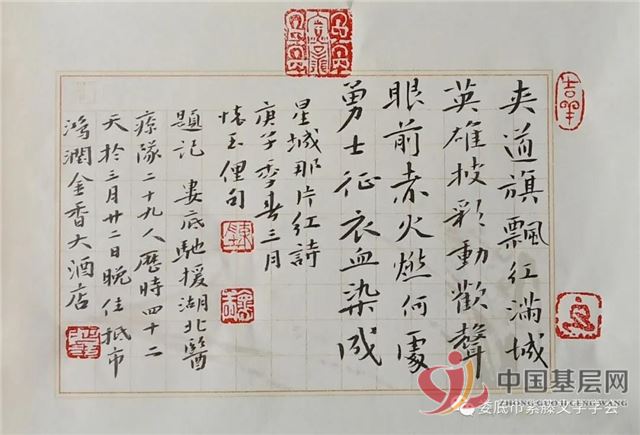 吉羊
夾道旗飄红满城
英雄披彩動歡聲
眼前赤火燃何處
勇士征衣血染成
星城那片红詩
庚子季春三月
懷玉俚句
題記 婁底馳援湖北醫
療隊二十九人歷時四十二
天於三月廿二日晚住抵市
鸿潤金香大酒店
中国基层网
ZHONG GUO JI CENG WANG
娄底市紫藤文学学会